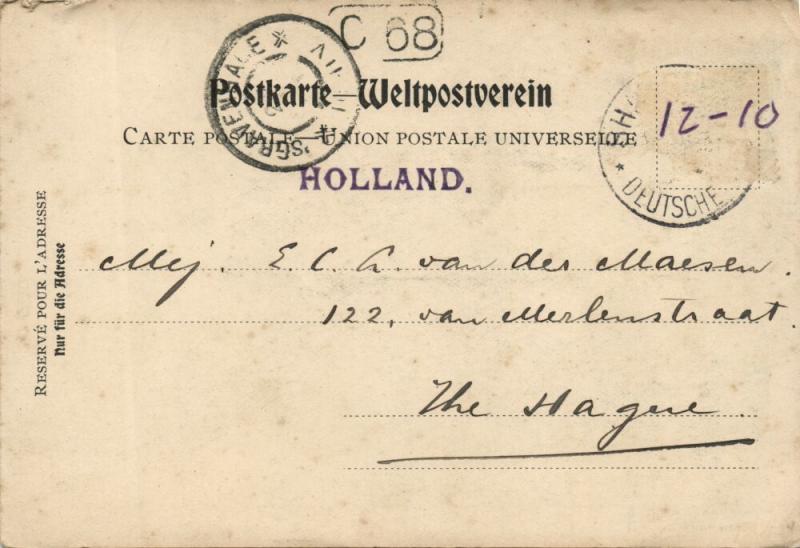 C 68
'SGRAVENHAGE
Postkarte—Weltpostverein
CARTE POSTALE—UNION POSTALE UNIVERSELLE
12-10
DEUTSCHE
HOLLAND.
RESERVÉ POUR L'ADRESSE
Nur für die Adresse
Mej. E. C. A. van der Maesen.
122, van Merlenstraat.
The Hague.